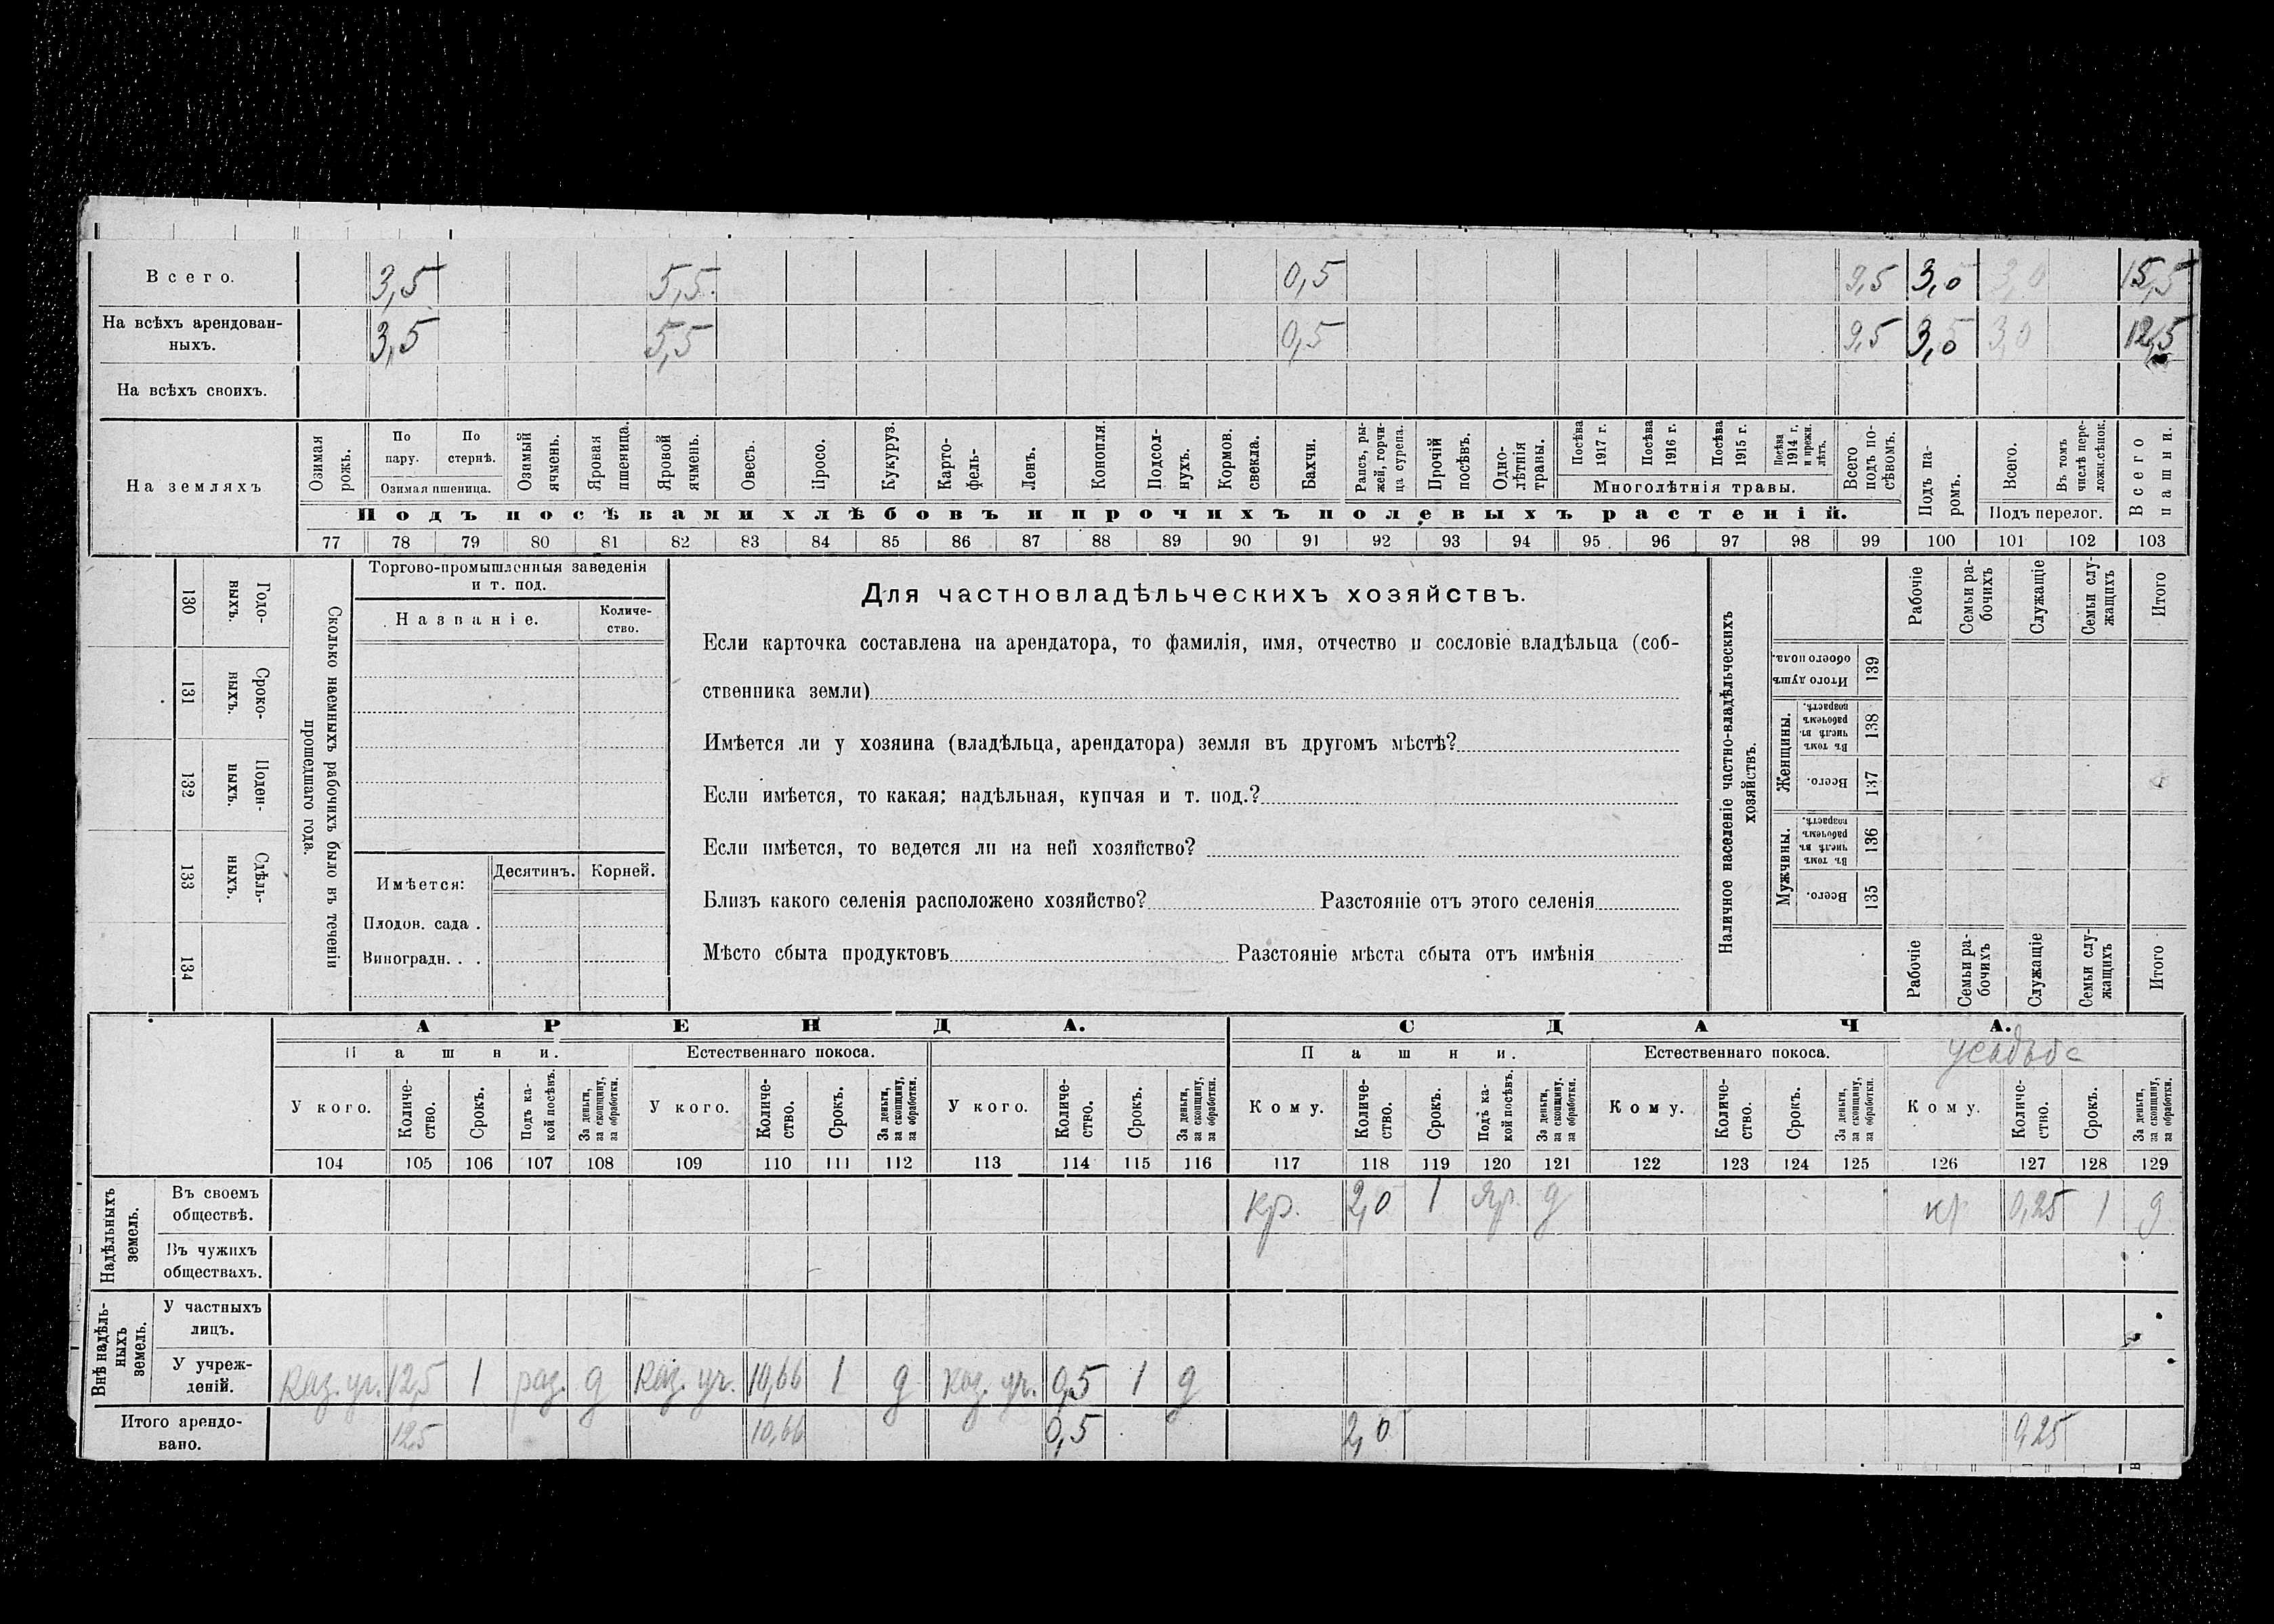 Всего. 3,5 5,5 0,5 9,5 3,0 3,0 15,5
На всѣхъ арендован-
ныхъ. 3,5 5,5 0,5 9,5 3,0 3,0 12,5
На всѣхъ своихъ.
На земляхъ
Озимая рожь.
По пару.
По стернѣ.
Озимая пшеница.
Озимый ячмень.
Яровая пшеница.
Яровой ячмень.
Овесъ.
Просо.
Кукуруз.
Карто-
фель-
Ленъ.
Конопля.
Подсол-
нухъ.
Кормов.
свекла.
Бахчи.
Рапсъ, ры-
жей, горчи-
ца сурепа.
Прочій
посѣвъ.
Одно-
лѣтнія
травы.
Посѣва
1917 г.
Посѣва
1916 г.
Посѣва
1915 г.
Посѣва
1914 г.
и прежн.
лѣтъ.
Многолѣтнія травы.
Всего
подъ по-
сѣвомъ.
Подъ па-
ромъ.
Всего.
Въ томъ
числѣ пере-
ложн.сѣнок.
Подъ перелог.
Всего
пашни.
Подъ посѣвами хлѣбовъ и прочихъ полевыхъ растеній.
77 78 79 80 81 82 83 84 85 86 87 88 89 90 91 92 93 94 95 96 97 98 99 100 101 102 103
130 Годо-
выхъ.
131 Сроко-
выхъ.
132 Поден-
ныхъ.
133 Сдѣль-
ныхъ.
134
Сколько наемныхъ рабочихъ было въ теченіи
прошедшаго года.
Торгово-промышленныя заведенія
и т. под.
Названіе.
Количе-
ство.
Имѣется:
Десятинъ. Корней.
Плодов. сада .
Виноградн. . .
Для частновладѣльческихъ хозяйствъ.
Если карточка составлена на арендатора, то фамилія, имя, отчество и сословіе владѣльца (соб-
ственника земли)
Имѣется ли у хозяина (владѣльца, арендатора) земля въ другомъ мѣстѣ?
Если имѣется, то какая: надѣльная, купчая и т. под.?
Если имѣется, то ведется ли на ней хозяйство?
Близъ какого селенія расположено хозяйство? Разстояніе отъ этого селенія
Мѣсто сбыта продуктовъ Разстояніе мѣста сбыта отъ имѣнія
Наличное населеніе частно-владѣльческихъ
хозяйствъ.
Рабочіе
Семьи ра-
бочихъ
Служащіе
Семьи слу-
жащихъ
Итого
Итого душъ
обоего пола.
139
Женщины.
Въ томъ
числѣ въ
рабочемъ
возрастѣ.
138
Всего.
137
Мужчины.
Въ томъ
числѣ въ
рабочемъ
возрастѣ.
136
Всего.
135
Рабочіе
Семьи ра-
бочихъ
Служащіе
Семьи слу-
жащихъ
Итого
АРЕНДА. СДАЧА.
Пашни. Естественнаго покоса. Пашни. Естественнаго покоса. усадьба
У кого.
Количе-
ство.
Срокъ.
Подъ ка-
кой посѣвъ.
За деньги,
за скопщину,
за обработки.
У кого.
Количе-
ство.
Срокъ.
За деньги,
за скопщину,
за обработки.
У кого.
Количе-
ство.
Срокъ.
За деньги,
за скопщину,
за обработки.
Кому.
Количе-
ство.
Срокъ.
Подъ ка-
кой посѣвъ.
За деньги,
за скопщину.
за обработки.
Кому.
Количе-
ство.
Срокъ.
За деньги,
за скопщину,
за обработки.
Кому.
Количе-
ство.
Срокъ.
За деньги,
за скопщину,
за обработки.
104 105 106 107 108 109 110 111 112 113 114 115 116 117 118 119 120 121 122 123 124 125 126 127 128 129
Надѣльныхъ
земель.
Въ своемъ
обществѣ. кр. 2,0 1 яр. д кр 0,25 1 д
Въ чужихъ
обществахъ.
Внѣ надѣль-
ныхъ
земель.
У частныхъ
лицъ.
У учреж-
деній. каз. уч. 12,5 1 раз. д каз. уч. 10,66 1 д каз. уч. 0,5 1 д
Итого арендо-
вано. 12,5 10,66 0,5 2,0 0,25